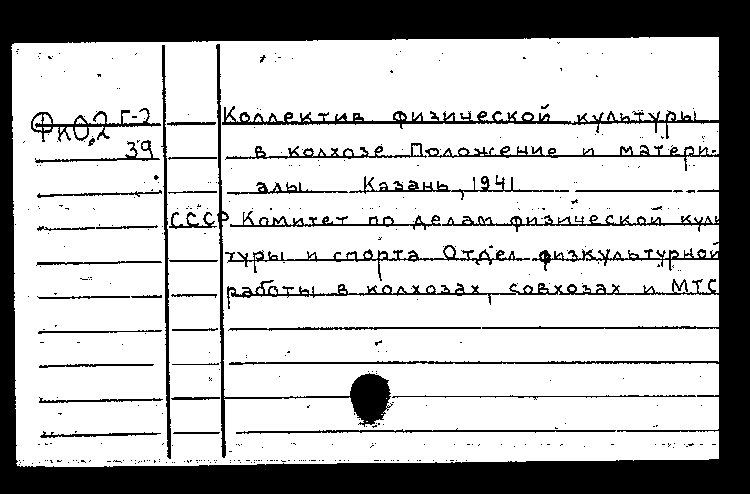 ФкО,2 Г-2
39
Коллектив физической культуры
в колхозе Положение и матери-
алы Казань, 1941
СССР Комитет по делам физической куль
туры и спорта Отдел физкультурной
работы в колхозах, совхозах и МТС